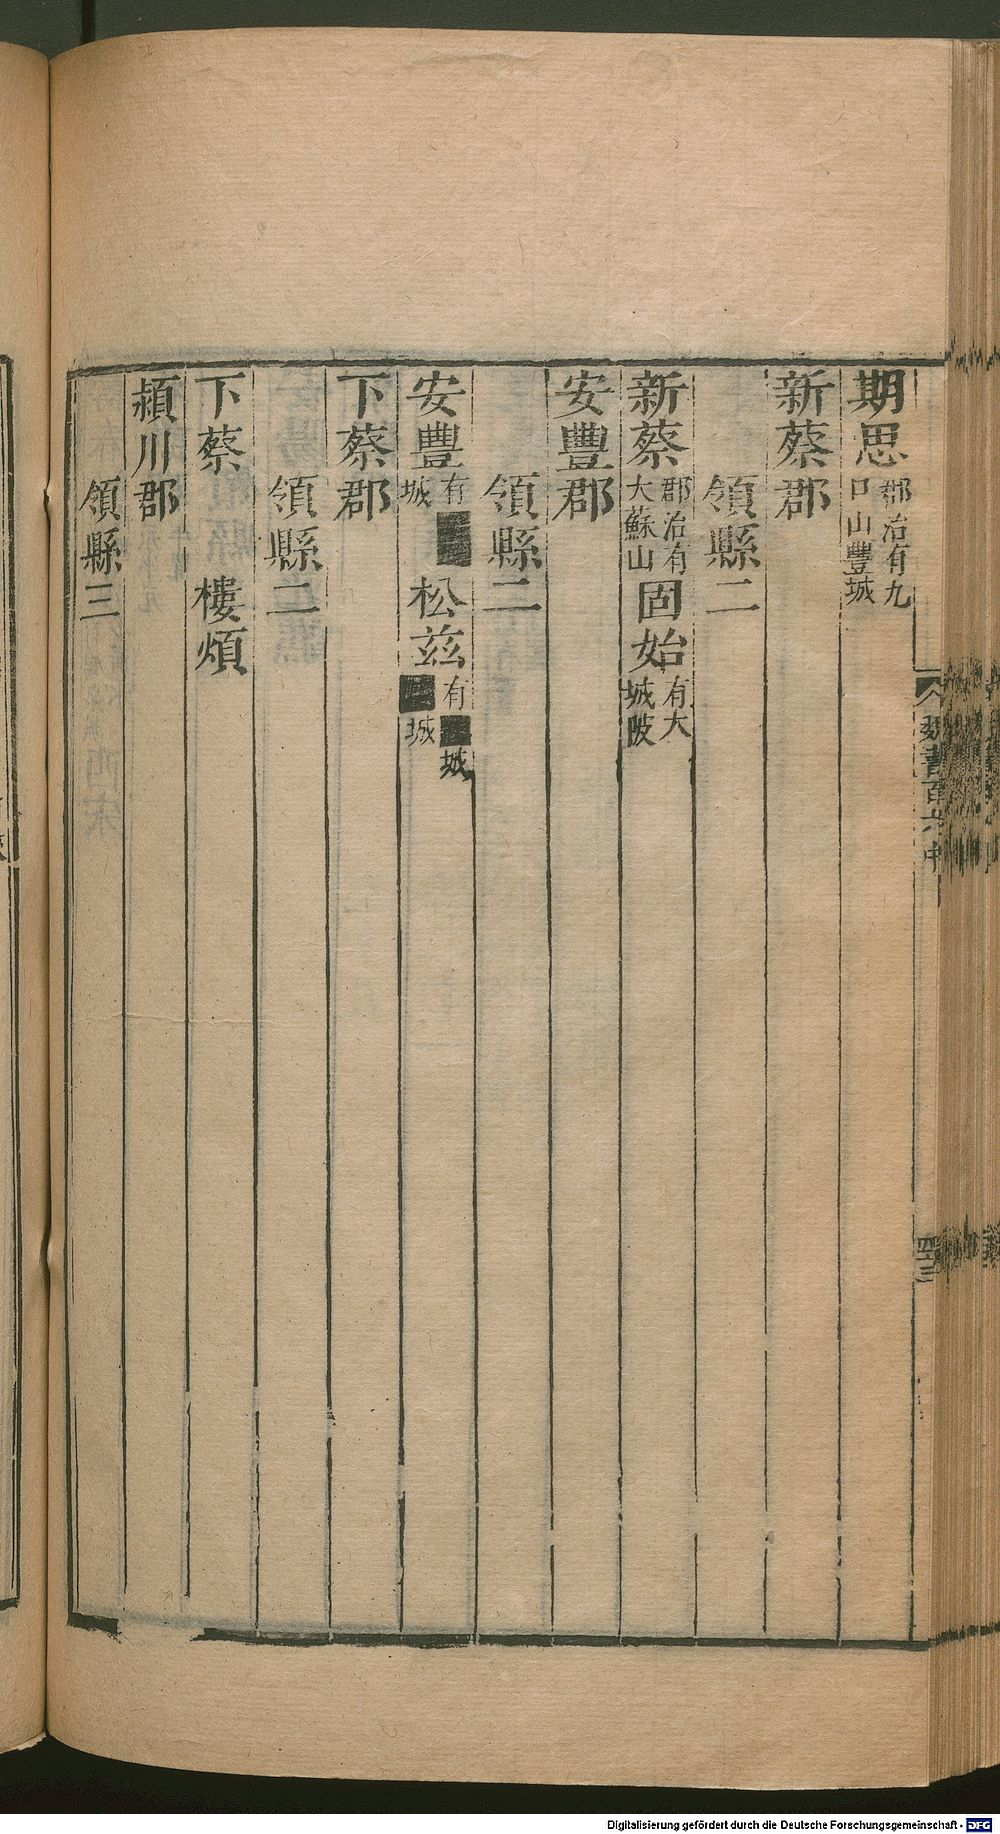 期思郡治有九口山豐城
新蔡郡
領縣二
新蔡郡治有大蘇山固始有大城陂
安豐郡
領縣二
安豐有■城松茲有■城■城
下蔡郡
領縣二
下蔡樓煩
潁川郡
領縣三
魏書百六中
四三
Digitalisierung gefördert durch die Deutsche Forschungsgemeinschaft - DFG